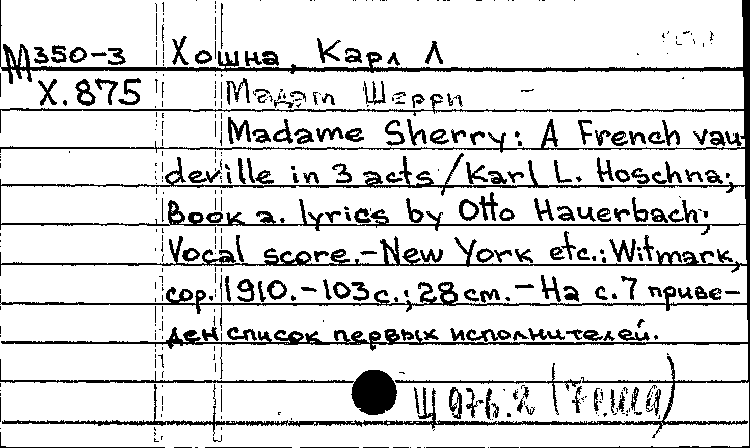 М350-3 Хошна, Карл Л
Х.875 Мадам Шерри -
Madame Sherry: A French vau-
deville in 3 acts/Karl L. Hoschna;
Book a. lyrics by Otto Hauerbach;
Vocal score.-New York etc.: Witmark,
cop. 1910.-103с.; 28см.-На с.7 приве-
ден список первых исполнителей.
Щ 976.2